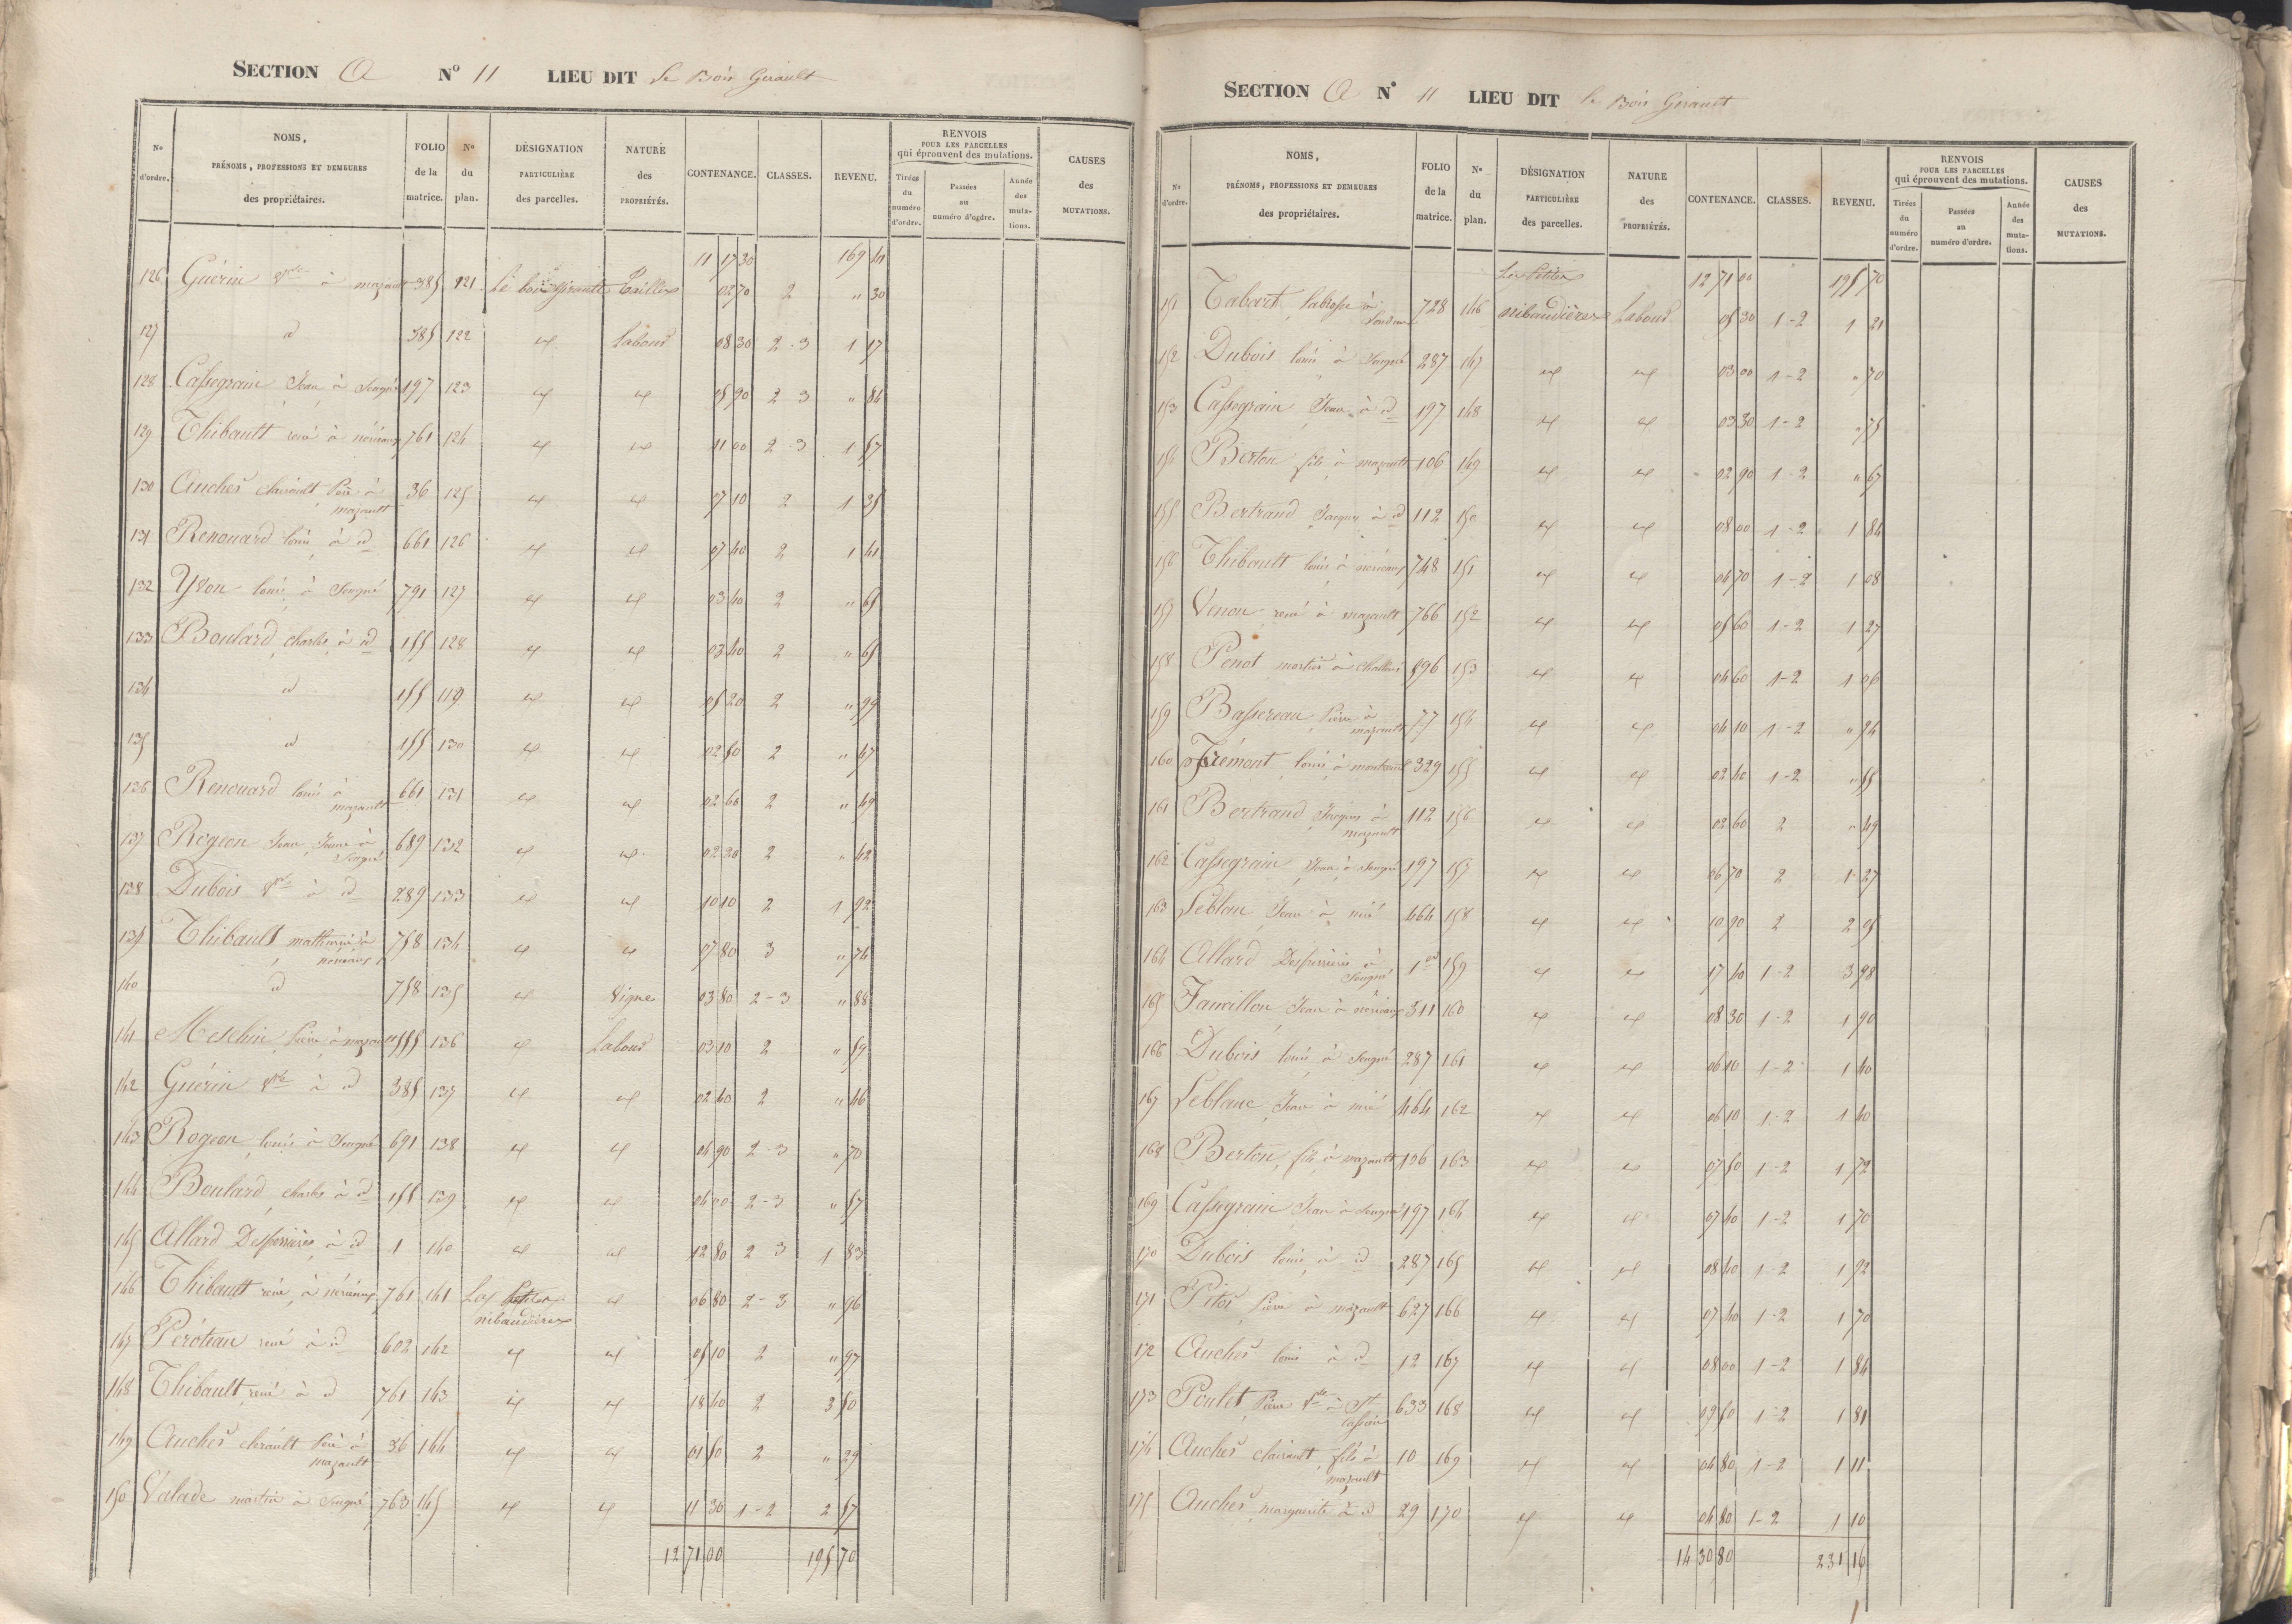 SECTION A N° 11 LIEU DIT Le Bois Girault
N° d'ordre. NOMS, PRÉNOMS, PROFESSIONS ET DEMEURES des propriétaires. FOLIO de la matrice. N° du plan. DÉSIGNATION PARTICULIÈRE des parcelles. NATURE des PROPRIÉTÉS. CONTENANCE. CLASSES. REVENU. RENVOIS POUR LES PARCELLES qui éprouvent des mutations. Tirées du numéro d'ordre. Passées au numéro d'ordre. Année des mutations. CAUSES des MUTATIONS.
11 17 30 169 41
126 Guérin Vve à mazault 385 121 Le bois Girault Taillis 02 70 2 " 30
127 id 385 122 id Labour 08 30 2-3 1 17
128 Cassegrain Jean à Sougné 197 123 id id 05 90 2 3 " 84
129 Thibault rené à nérieaux 761 124 id id 11 00 2-3 1 57
130 Auches clairault Père à mazault 36 125 id id 07 10 2 1 35
131 Renouard louis à id 661 126 id id 07 40 2 1 41
132 Yvon louis à Sougné 791 127 id id 03 40 2 " 65
133 Boulard charles à id 155 128 id id 03 40 2 " 65
134 id 155 119 id id 05 20 2 " 99
135 id 155 130 id id 02 50 2 " 47
136 Renouard louis à mazault 661 131 id id 02 60 2 " 49
137 Rogeon Jean Jeune à Sougné 689 132 id id 02 20 2 " 42
138 Dubois Vve à id 289 133 id id 10 10 2 1 92
139 Thibault mathurin à nérieaux 758 134 id id 07 80 3 " 74
140 id 758 135 id Vigne 03 80 2-3 " 88
141 Meschin Pierre à mazault 555 136 id Labour 03 10 2 " 59
142 Guérin Vve à id 385 137 id id 02 40 2 " 46
143 Rogeon louis à Sougné 691 138 id id 04 90 2-3 " 70
144 Boulard charles à id 155 139 id id 04 00 2-3 " 57
145 Allard Desferrières à id 1 140 id id 12 80 2 3 1 83
146 Thibault rené à nérieaux 761 141 Les Petites nibaudières id 06 80 2-3 " 96
147 Peroteau rené à id 602 142 id id 05 10 2 " 97
148 Thibault rené à id 761 143 id id 18 40 2 3 50
149 Auches clérault Père à mazault 36 144 id id 01 50 2 " 29
150 Valade martin à Sougné 763 145 id id 11 30 1-2 2 57
12 71 00 195 70
SECTION A N° 11 LIEU DIT le Bois Girault
N° d'ordre. NOMS, PRÉNOMS, PROFESSIONS ET DEMEURES des propriétaires. FOLIO de la matrice. N° du plan. DÉSIGNATION PARTICULIÈRE des parcelles. NATURE des PROPRIÉTÉS. CONTENANCE. CLASSES. REVENU. RENVOIS POUR LES PARCELLES qui éprouvent des mutations. Tirées du numéro d'ordre. Passées au numéro d'ordre. Année des mutations. CAUSES des MUTATIONS.
12 71 00 195 70
151 Tabart, labrosse à Loudun 728 146 Les Petites nibaudières Labour 05 30 1-2 1 21
152 Dubois louis à Sougné 287 147 id id 03 00 1-2 " 70
153 Cassegrain Jean à id 197 148 id id 03 30 1-2 " 75
154 Berton fils à mazault 106 149 id id 02 90 1-2 " 67
155 Bertrand Jacques à id 112 150 id id 08 00 1-2 1 84
156 Thibault louis à nérieaux 748 151 id id 04 70 1-2 1 08
157 Venon rené à mazault 766 152 id id 05 60 1-2 1 27
158 Penot martin à 596 153 id id 04 60 1-2 1 06
159 Bassereau Pierre à mazault 77 154 id id 04 10 1-2 " 94
160 Frémont louis à 329 155 id id 02 40 1-2 " 55
161 Bertrand Jacques à mazault 112 156 id id 02 60 2 " 49
162 Cassegrain Jean à Sougné 197 157 id id 06 70 2 1 27
163 Leblanc Jean à mié 464 158 id id 10 90 2 2 05
164 Allard Desferrières à Sougné 1 159 id id 17 40 1-2 3 98
165 Faucillon Jean à nérieaux 311 160 id id 08 30 1-2 1 90
166 Dubois louis à Sougné 287 161 id id 06 10 1-2 1 40
167 Leblanc Jean à mié 464 162 id id 06 10 1-2 1 40
168 Berton fils à mazault 106 163 id id 07 50 1-2 1 72
169 Cassegrain Jean à Sougné 197 164 id id 07 40 1-2 1 70
170 Dubois louis à id 287 165 id id 08 40 1-2 1 92
171 Pitois Pierre à mazault 627 166 id id 07 40 1-2 1 70
172 Auches louis à id 12 167 id id 08 00 1-2 1 84
173 Poulet Pierre Vve à St Cassien 633 168 id id 09 50 1-2 1 81
174 Auches clairault fils à mazault 10 169 id id 04 80 1-2 1 11
175 Auches marguerite à id 29 170 id id 04 80 1-2 1 10
14 30 80 231 16